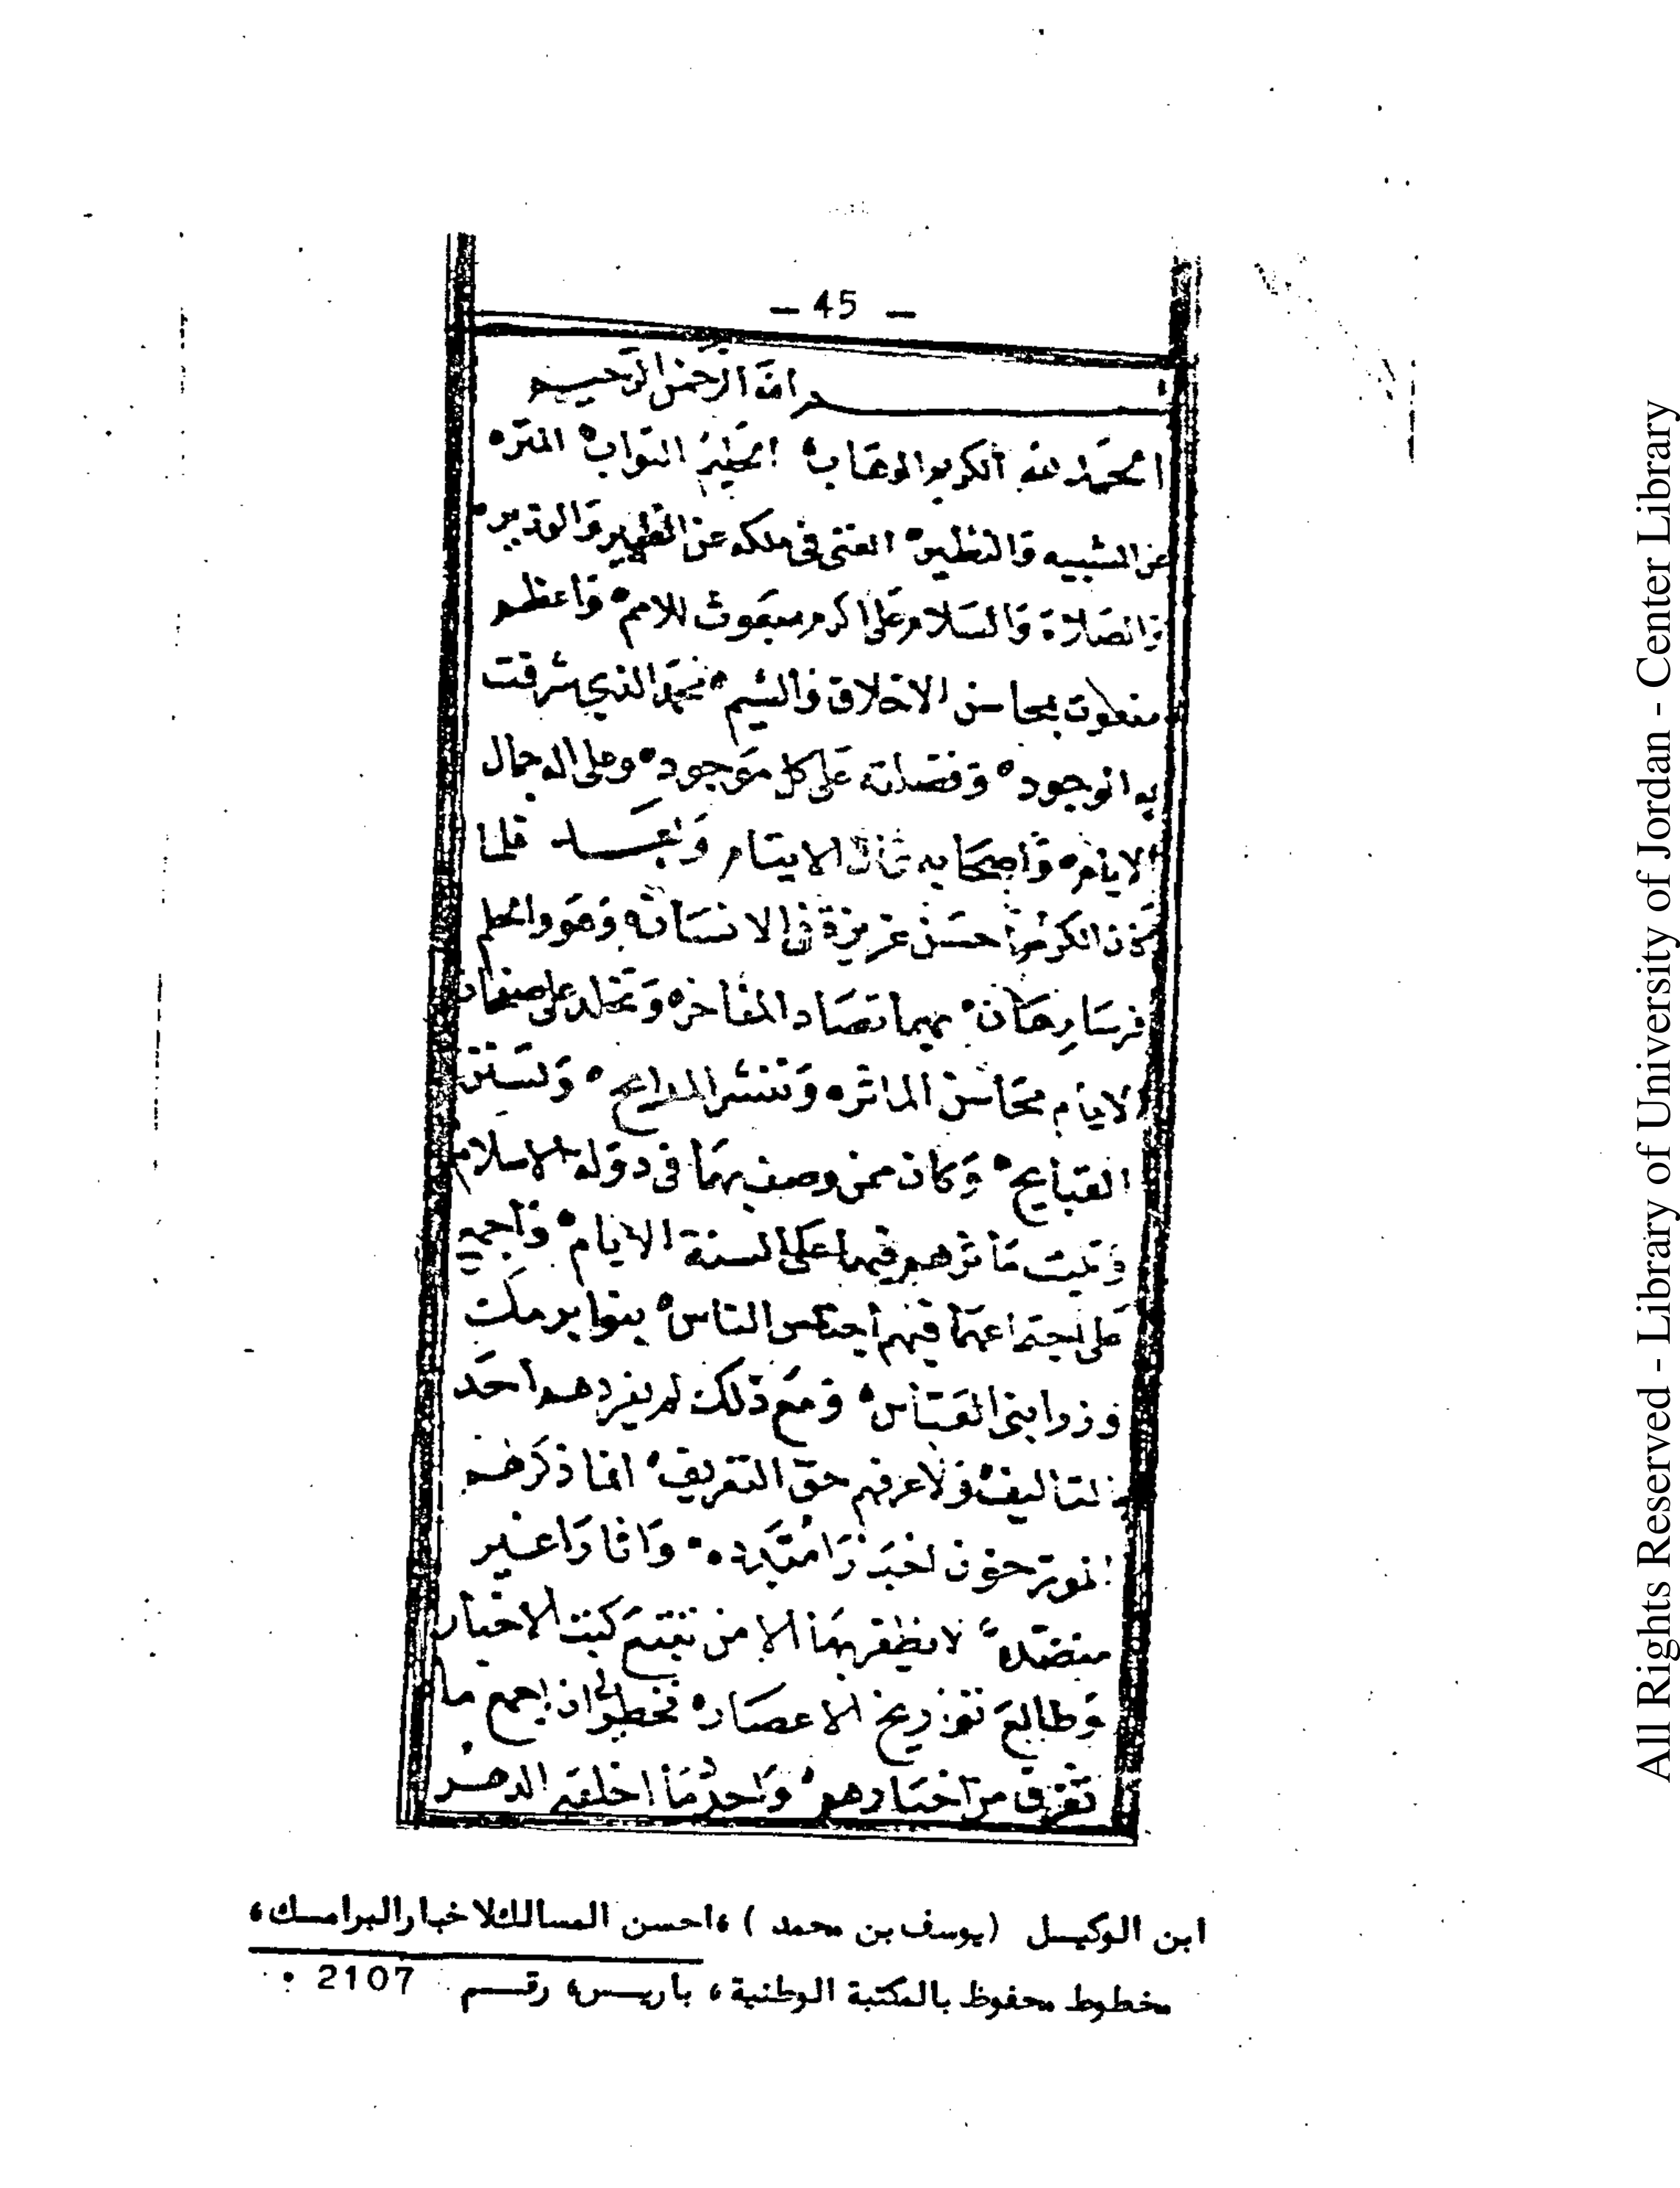 — 45 —
بسم الله الرحمن الرحيم
الحمد لله الكريم الوهاب الحليم التواب المنزه
عن الشبيه والنظير الغنى فى ملكه عن الظهير والوزير
والصلاة والسلام على اكرم مبعوث للامم واعظم
منعوت بمحاسن الاخلاق والشيم محمد الذي شرفت
به الوجود وفضلته على كل موجود وعلى اله جمال
الايام واصحابه ثمال الايتام وبعد فلما
كان الكرم احسن غريزة فى الانسان وهو والحلم
فرسا رهان بهما تصاد المفاخر وتخلد على صفحات
الايام محاسن الماثر وتنشر المدايح وتستتر
القبايح وكان ممن وصف بهما فى دولة الاسلام
وتليت مأثرهم فيهما على السنة الايام واجمع
على اجتماعهما فيهم اجناس الناس بنوا برمك
وزرا بنى العباس ومع ذلك لم يفردهم احد
بالتاليف ولا عرفهم حق التعريف انما ذكرهم
المورخون اخبارا مبدده واثارا غير
منضده لا يظفر بها الا من تتبع كتب الاخبار
وطالع تواريخ الاعصار فخطر لى ان اجمع ما
تفرق من اخبارهم واجدد ما اخلقه الدهر
ابن الوكيل (يوسف بن محمد) ، احسن المسالك لاخبار البرامك ،
مخطوط محفوظ بالمكتبة الوطنية ، باريس، رقم 2107 .
All Rights Reserved - Library of University of Jordan - Center Library